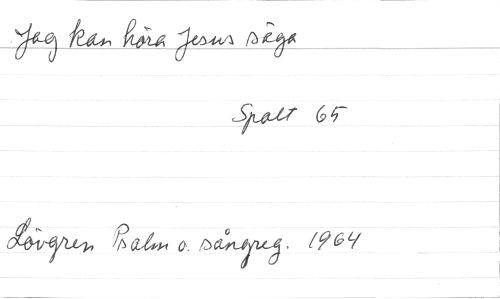 Jag kan höra Jesus säga
Spalt 65
Lövgren Psalm o. sångreg. 1964